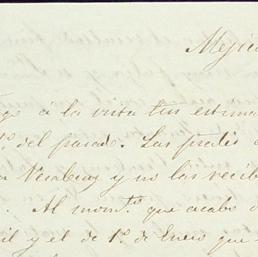 Mejic
go á la vista tus estima
1º del pasado. Las predi
Veracruz y no las recib
. Al momto que acabo d
il y el de 1º de Enero que